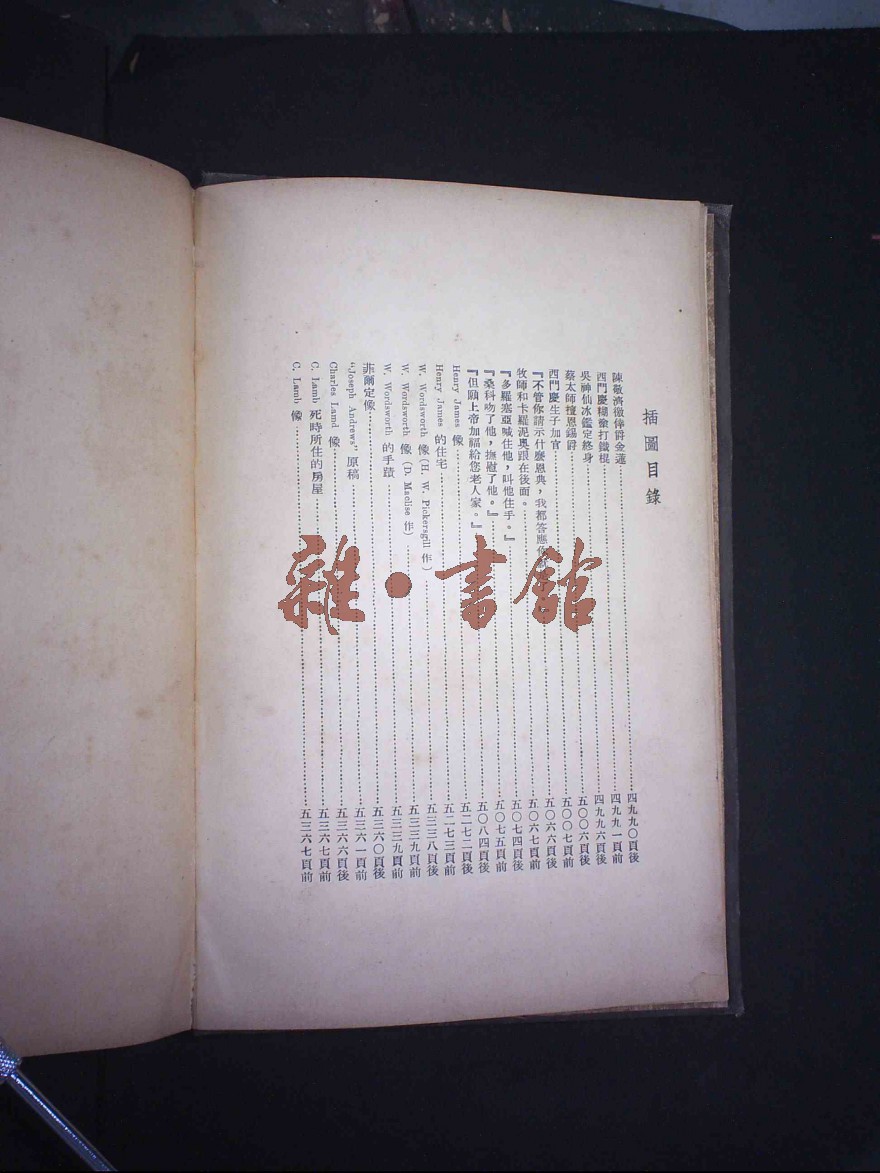 插圖目錄
陳敬濟徼倖得金蓮……四九九〇頁後
西門慶糊塗打鐵棍……四九九一頁前
吳神仙冰鑑定終身……四九九六頁後
蔡太師擅恩錫爵……五〇〇六頁後
西門慶生子加官……五〇〇七頁前
『不管你請示什麼恩典,我都答應你……五〇六六頁後
牧師和卡羅泥奧跟在後面。……五〇六七頁前
『多羅塞亞喊住他,叫他住手。』……五〇七四頁後
『桑科吻了他,撫慰了他。』……五〇七五頁前
『但願上帝加福給您老人家。』……五〇八四頁後
Henry James 像……五二七二頁後
Henry James 的住宅……五二七三頁前
W. Wordsworth 像 (H. W. Pickersgill 作)……五三三八頁後
W. Wordsworth 像 (D. Maclise 作)……五三三九頁前
W. Wordsworth 的手蹟……五三三九頁前
菲爾定像……五三六〇頁後
"Joseph Andrews" 原稿……五三六一頁前
Charles Lamd 像……五三六六頁後
C. Lamb 死時所住的房屋……五三六七頁前
C. Lamb 像……五三六七頁前
雜·書館